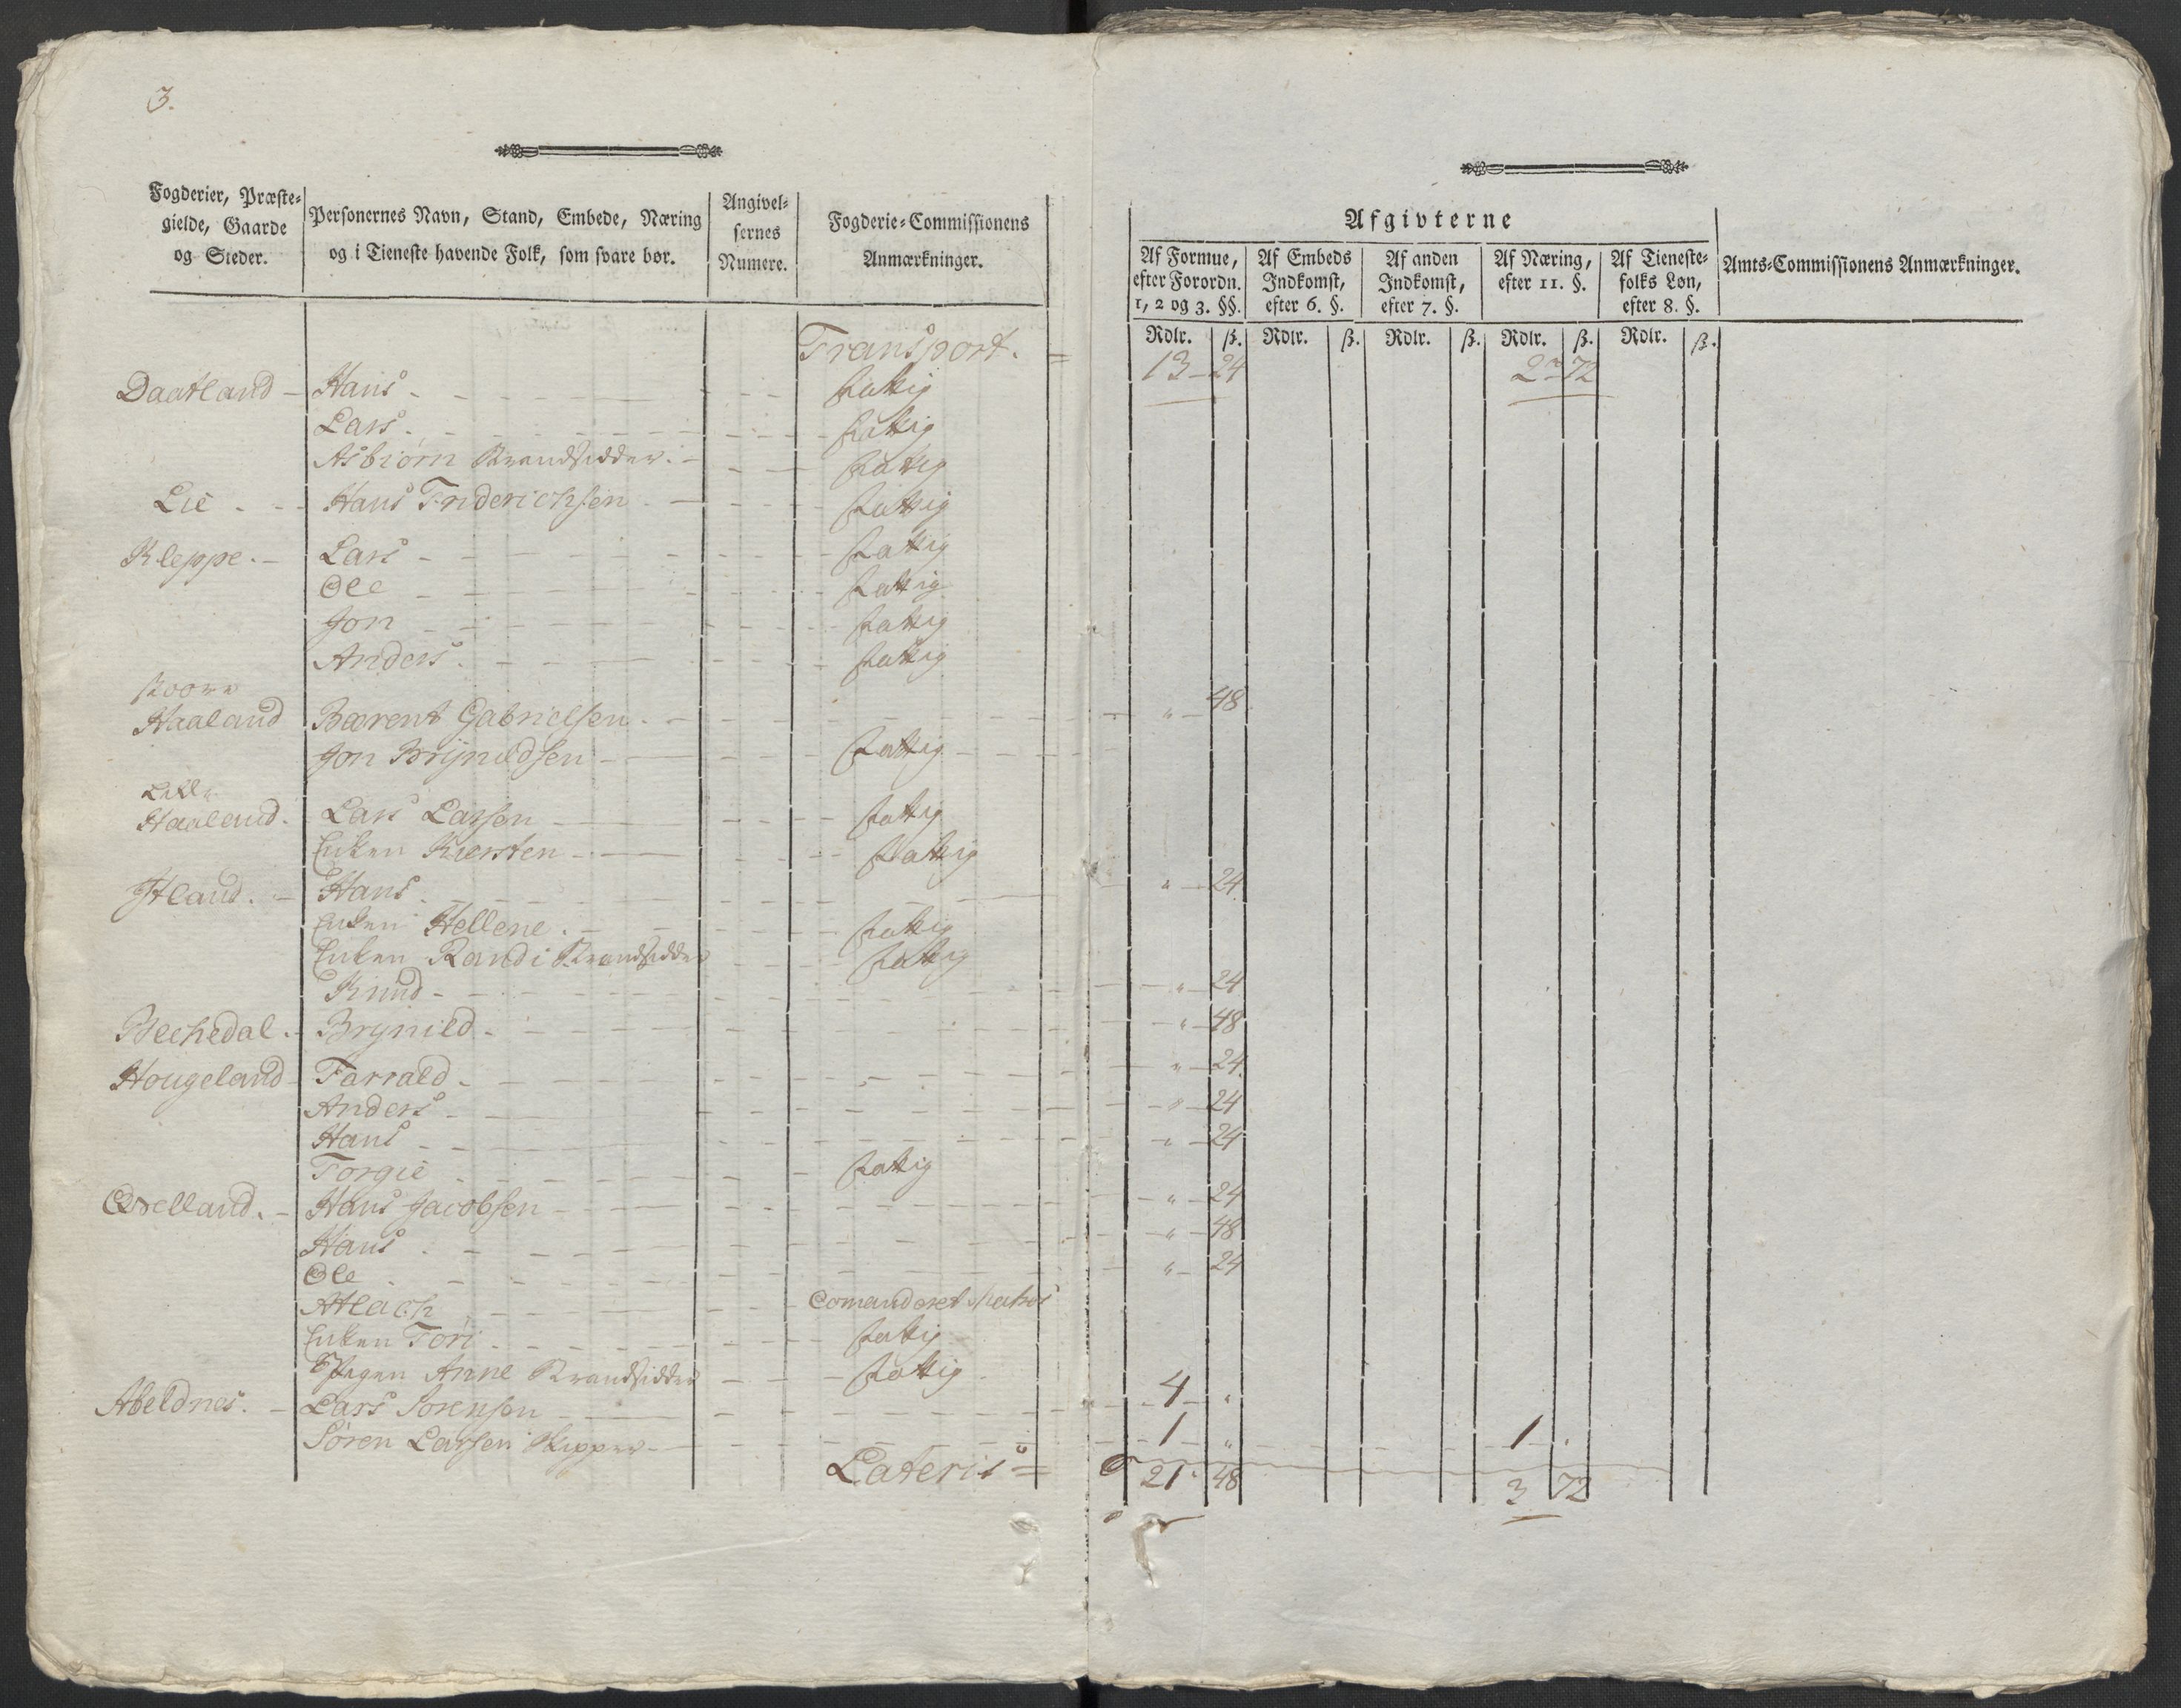 3.
Fogderier, Præste-
gielde, Gaarde
og Steder.
Personernes Navn, Stand, Embede, Næring
og i Tieneste havende Folk, som svare bør.
Angivel-
sernes
Numere.
Fogderie-Commissionens
Anmærkninger.
Afgivterne
Af Formue,
efter Forordn.
1, 2 og 3. §§.
Af Embeds
Indkomst,
efter 6. §.
Af anden
Indkomst,
efter 7. §.
Af Næring,
efter 11. §.
Af Tieneste-
folks Løn,
efter 8. §.
Amts-Commissionens Anmærkninger.
Rdlr. ß. Rdlr. ß. Rdlr. ß. Rdlr. ß. Rdlr. ß.
Transport. = 13 - 24 2 - 72
Daatland - Hans - fattig
Lars - fattig
Asbiørn Brandsidder. - fattig
Lie - Hans Friderichsen - fattig
Kleppe. - Lars - fattig
Ole - fattig
Jon - fattig
Anders - fattig
Haaland Bærent Gabrielsen - " - 48
Jon Brynildsen - fattig
Lille
Haaland. Lars Larsen - fattig
Enken Kiersten - fattig
Hans - " - 24
Enken Hellene - fattig
Enken Randi Brandsidder fattig
Knud - " - 24
Brynild - " - 48
Hougeland - Tarrald - " - 24
Anders - " - 24
Hans - " - 24
Torgie - fattig
Qvelland. - Hans Jacobsen - " - 24
Hans - " - 48
Ole - " - 24
Atlach - Comanderet Matros
Enken Tori - fattig
Anne Brandsidder - fattig
Abeldnes. - Lars Sørensen - 4 - "
Søren Larsen Skipper - 1 - " 1 - "
Lateris = 21 48 3 72